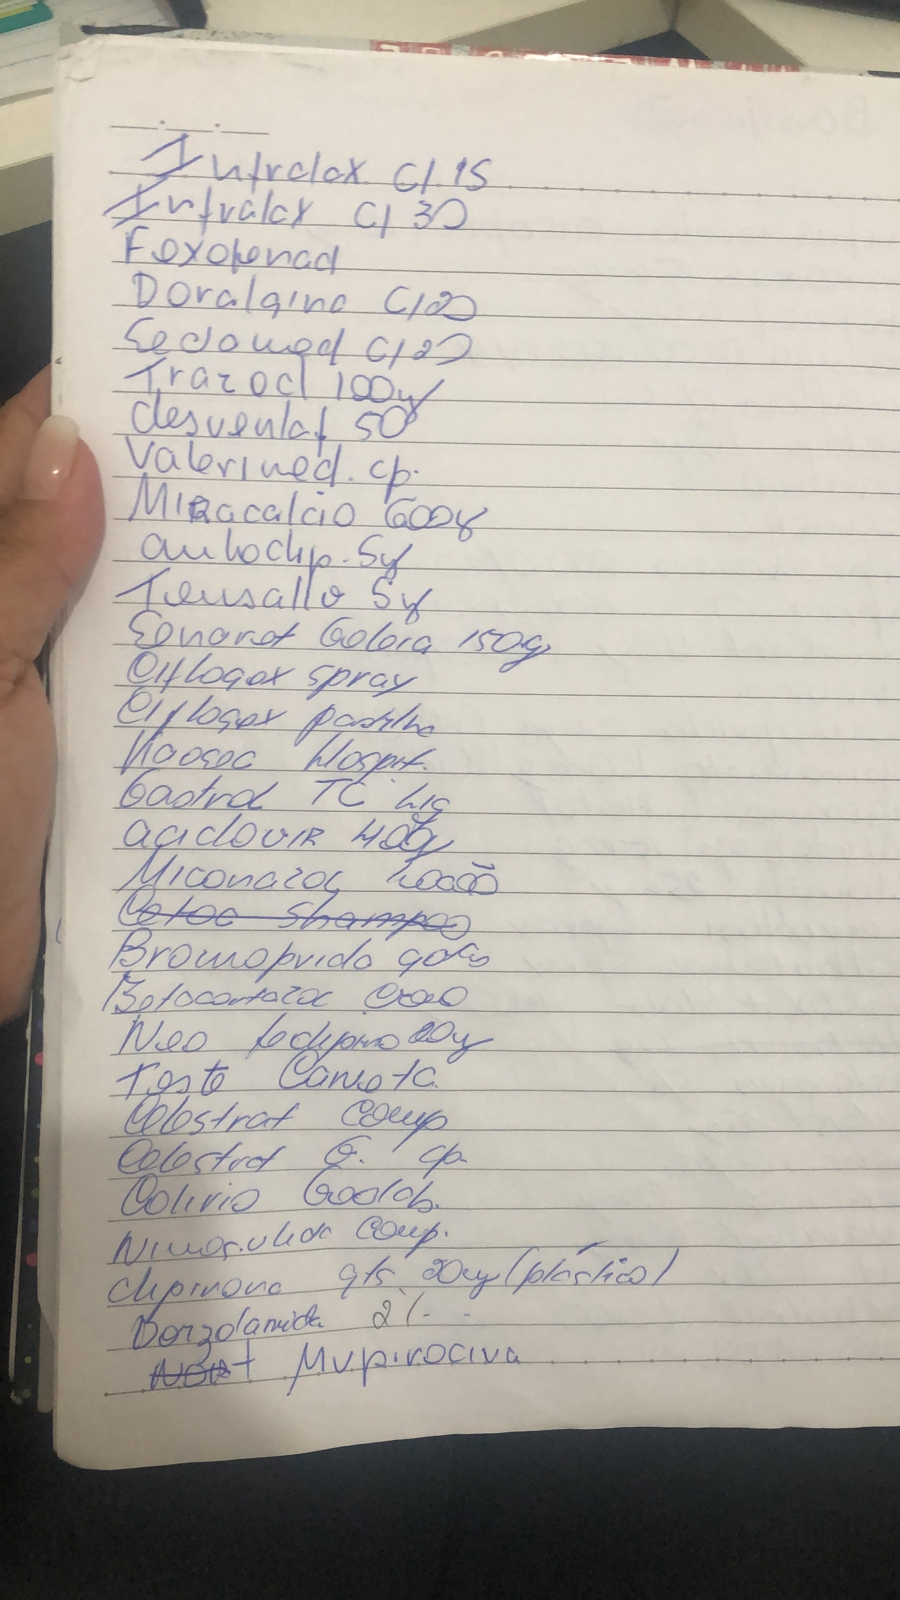 Infralax C/ 15
Infralax C/ 30
Fexofenad
Doralgina C/20
Sedamed C/20
Trazod 100mg
desvenlaf 50
Valerimed. cp.
Miracalcio 600mg
anlodip. 5mg
Tensaliv 5mg
Geleia 150g
Ciflogex spray
Ciflogex pastilha
Hospit.
Gastrol TC
aciclovir 400g
Miconazol Loção
Cetoc Shampoo
Bromoprida gotas
Betacortazol
Neo 20mg
Teste Caneta
Celestrat Comp
Celestrat G. cp.
Colirio Geolab.
Nimesulida Comp.
dipirona gts 20mg (plástico)
Dorzolamida 2%
Mupirocina